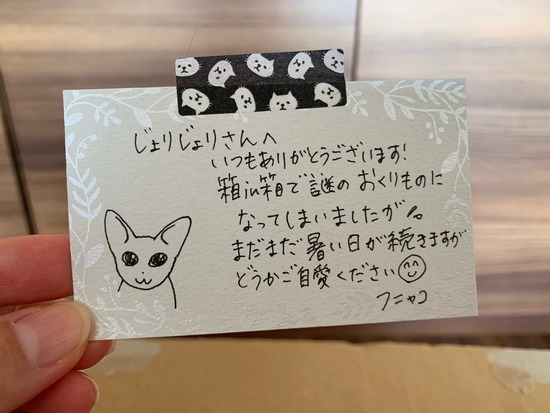 じょりじょりさんへ
いつもありがとうございます!
箱in箱で謎のおくりものに
なってしまいましたが
まだまだ暑い日が続きますが
どうかご自愛ください
フニャコ